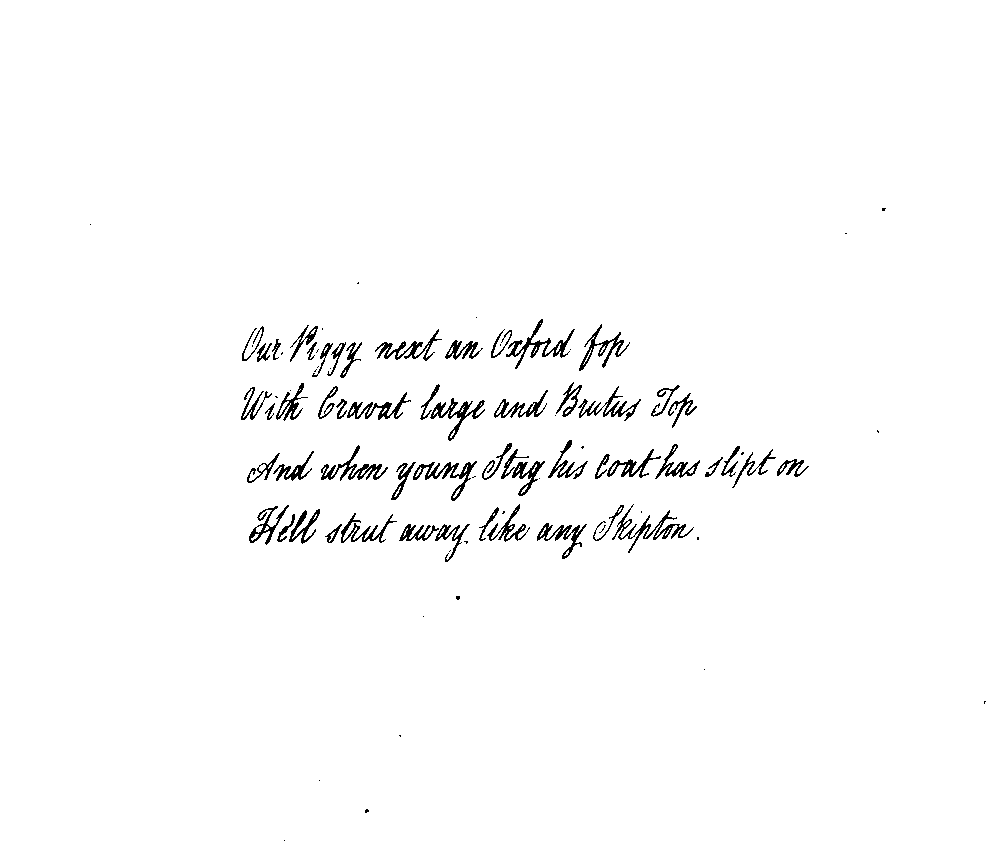 Our Piggy next an Oxford fop
With Cravat large and Brutus Top
And when young Stag his coat has slipt on
He'll strut away like any Skipton.